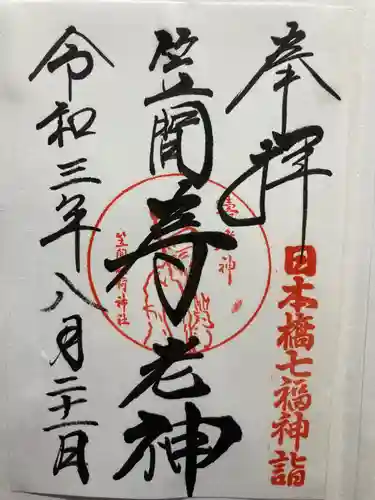 奉拝
日本橋七福神詣
笠間寿老神
寿老神
笠間稲荷神社
令和三年八月二十一日